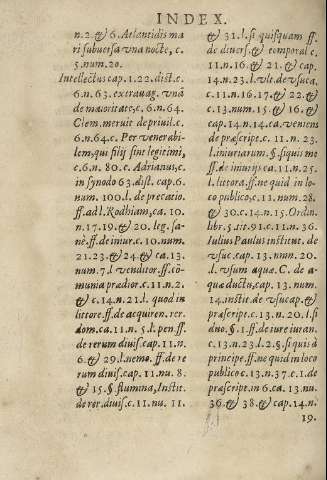 INDEX.
n.2.& 6. Atlantidis ma
ri subuersa vna nocte, c.
5.num.20.
Intellectus cap.1.22.dist.c.
6.n.63. extrauag. vnã
de maioritate,c.6.n.64.
Clem.meruit de priuil.c.
6.n.64.c. Per venerabi-
lem,qui filij sint legitimi,
c.6.n. 80.c. Adrianus,c.
in synodo 63.dist. cap.6.
num. 100.l. de precatio.
ff.ad l.Rodhiam,ca. 10.
n.17.19.& 20. leg. sa-
nè.ff.de iniur.c.10.num.
21.23.& 24.& ca.13.
num.7.l venditor.ff.cõ-
muna prædior.c.11.n.2.
& c.14.n.21.l. quod in
littore.ff.de acquiren.rer.
dom.ca.11.n.5.l.pen.ff.
de rerum diuis.cap.11.n.
6.& 29.l.nemo.ff.de re
rum diuis.cap.11.nu. 8.
& 15.§.flumina,Instit.
de rer.diuis.c.11.nu. 11.
& 31.l.si quisquam ff.
de diuers.& temporal c.
11.n.16.& 21.& cap.
14.n.23.l.vlt.de vsuca.
c.11.n.16.17.& 22.&
c.13.num.15.& 16.&
cap.14.n.14.ca.veniens
de præscript.c.11.n. 23.
l.iniuriarum.§.si quis me
ff.de iniurijs ca.11.n.25.
l.littora.ff.ne quid in lo-
co publico,c.11.num.28.
& 30.c.14.n.15.Ordin.
libr.5.tit.91.c.11.n.36.
Iulius Paulus institut.de
vsuc.cap.13.num.20.
l.vsum aquæ.C. de a-
quæ ductu,cap.13.num.
14.instit.de vsucap.&
præscript.c.13.n.20.l.si
duo.§.1.ff.de iure iuran.
c.13.n.23.l.2.§.si quis à
principe.ff.ne quid in loco
publico c.13.n.37.c.1.de
præscript.in 6.ca.13.nu.
36.& 38.& cap.14.n.
19.